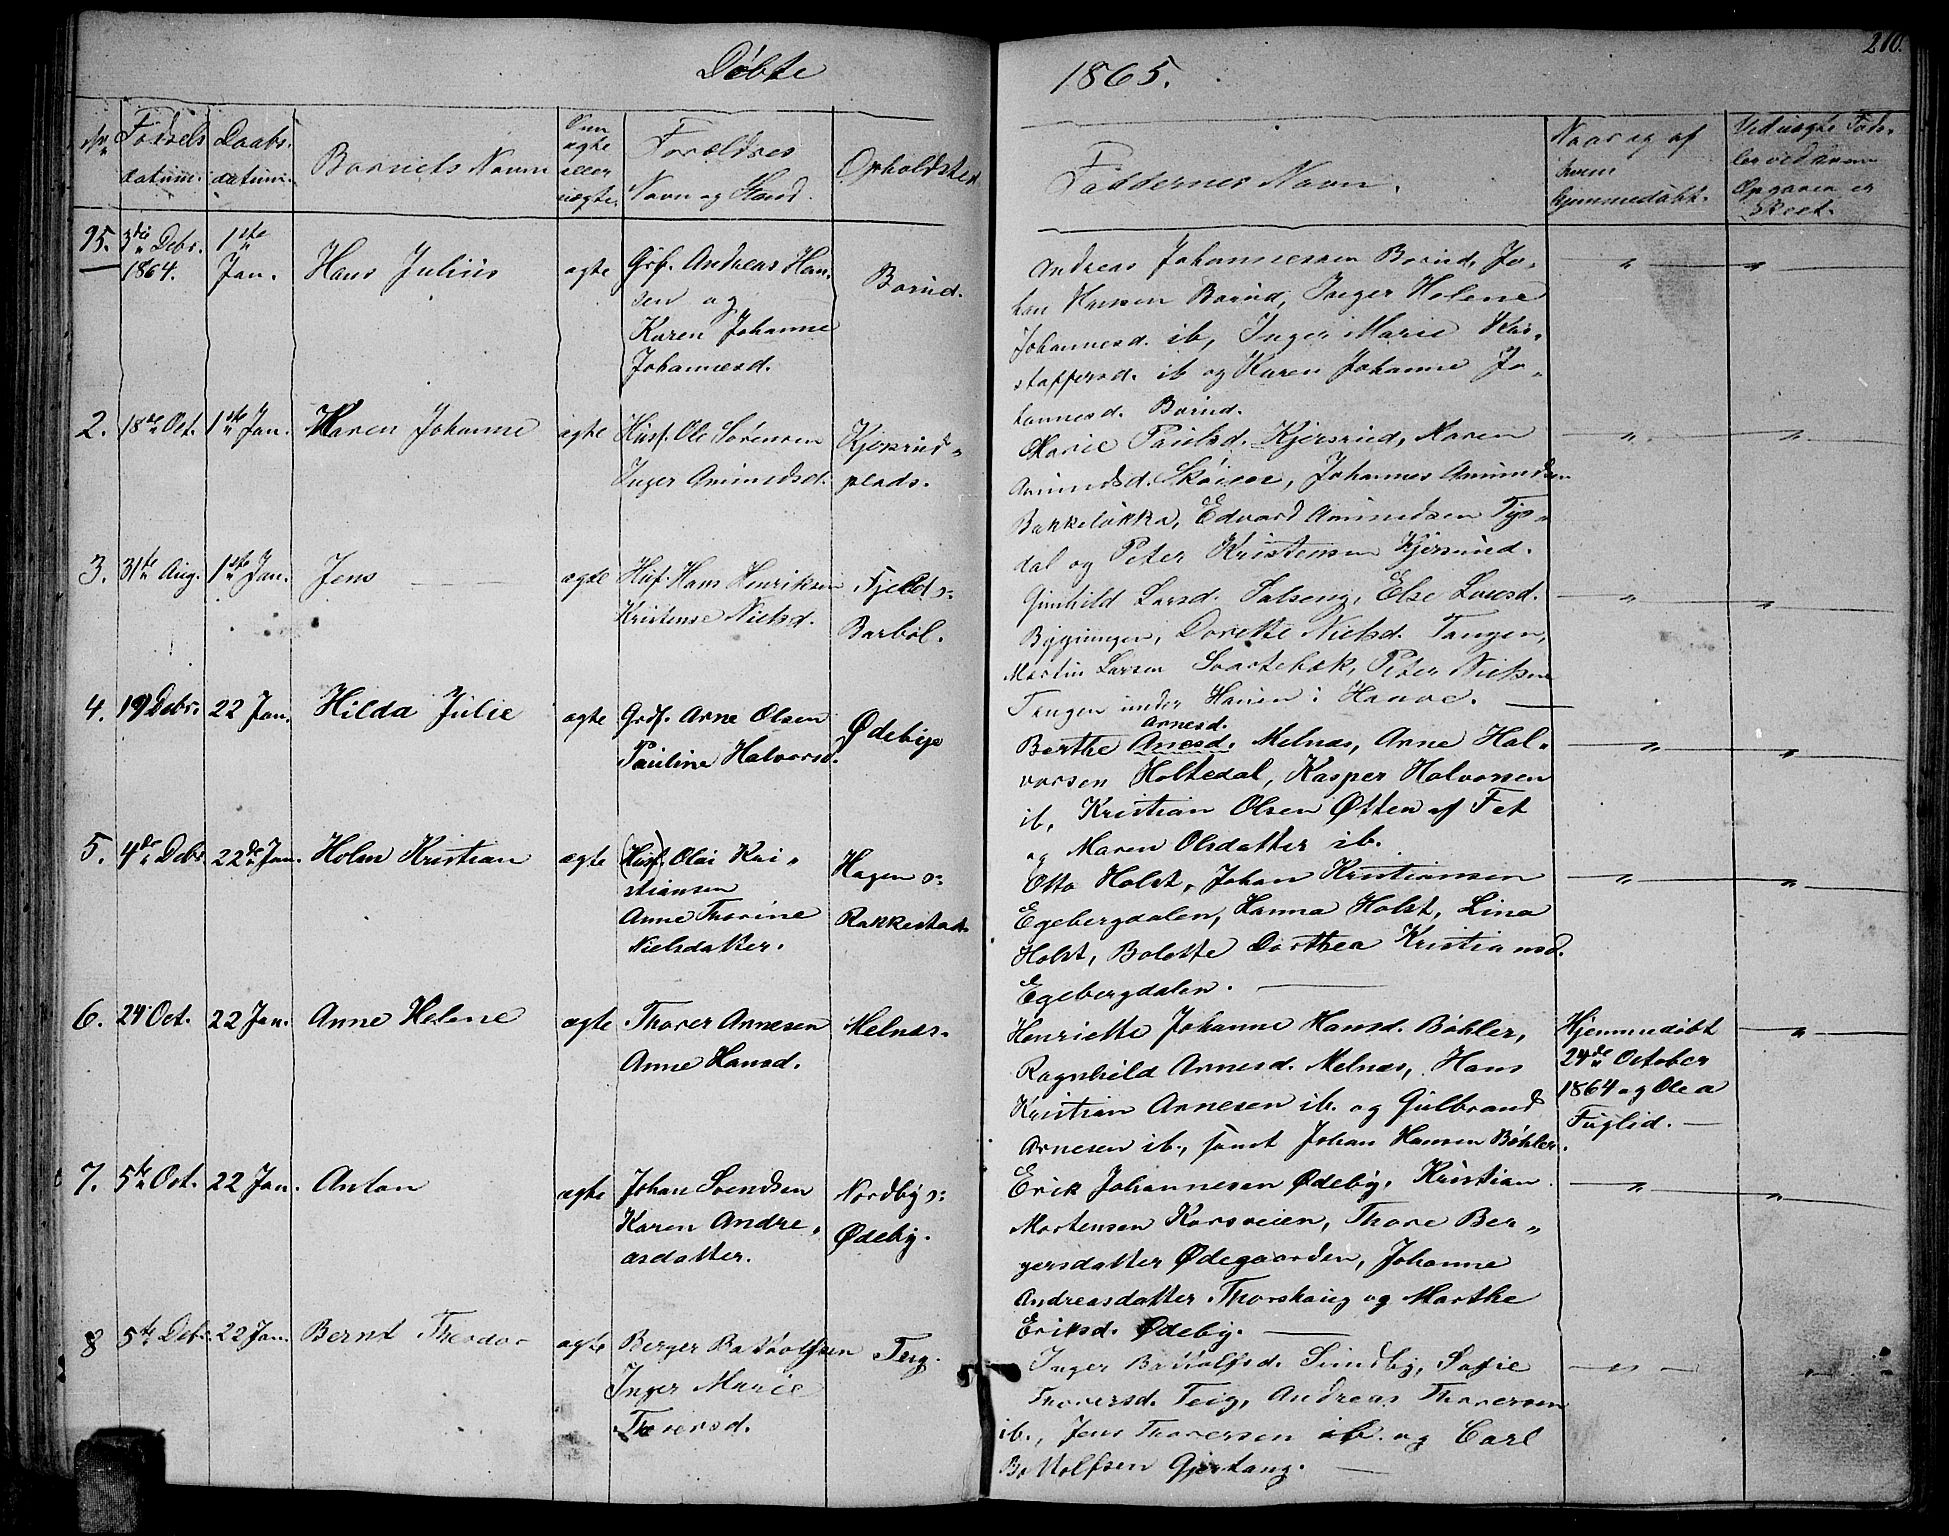 210.
Døbte 1865.
No.
Fødsels
datum.
Daabs-
datum.
Barnets Navn
om
ægte
eller
uægte.
Forældres
Navn og Stand.
Opholdsted.
Faddernes Navn.
Naar og af
hvem
hjemmedøbt.
Ved uægte Føds-
ler ved hvem
Opgaven er
Skeet.
3die Debr.
1864.
1ste
Jan.
Hans Julius
ægte
Grf. Andreas Han-
sen og
Karen Johanne
Johannesd.
Borud.
Andreas Johannessen Borud, Jo-
han Hansen Borud, Inger Helene
Johannesd. ib, Inger Marie Kri-
stoffersd. ib og Karen Johanne Jo-
hannesd. Borud.
" "
2.
18de Oct.
1ste Jan.
Karen Johanne
ægte
Husf. Ole Sørensen
Inger Amundsd.
Kjersrud-
plads.
Marie Paulsd. Kjersrud, Maren
Amundsd. Skoier, Johannes Amundsen
Bakkeløkka, Edvard Amundsen Tys-
dal og Peter Kristensen Kjersrud.
" "
3.
31te Aug.
1ste Jan.
Jens
ægte
Husf. Hans Henriksen
Kristense Nielsd.
Fjeld s:
Barbøl.
Gunhild Larsd. Salseng, Else Larsd.
Bygningen, Dorethe Nielsd. Tangen,
Martin Larsen Svartebæk, Peter Nielsen
Tangen under Hauen i Hauer.
" "
4.
19 Debr.
22 Jan.
Hilda Julie
ægte
Grdf. Arne Olsen
Pauline Halvorsd.
Ødebye
Arnesd.
Berthe Anesd. Melnæs, Arne Hal-
vorsen Holtedal, Kasper Halvorsen
ib, Kristian Olsen Øtten af Fet
og Maren Olsdatter ib.
" "
5.
4de Debr.
22de Jan.
Holm Kristian
ægte
(Husf) Olai Kri-
stiansen
Anne Thorine
Nielsdatter.
Hagen s:
Rakkestad.
Otto Holst, Johan Kristiansen
Egebergdalen, Hanna Holst, Lina
Holst, Bolette Dorthea Kristiansd.
Egebergdalen.
" "
6.
24 Oct.
22 Jan.
Anne Helene
ægte
Thorer Arnesen
Anne Hansd.
Melnæs.
Henriette Johanne Hansd. Bøhler,
Ragnhild Arnesd. Melnæs, Hans
Kristian Arnesen ib. og Gulbrand
Arnesen ib., samt Johan Hansen Bøhler.
Hjemmedøbt
24de October
1864 og Olea
Fuglid.
"
7.
5te Oct.
22 Jan.
Anton
ægte
Johan Svendsen
Karen Andre-
asdatter.
Nordby s:
Ødeby.
Erik Johannesen Ødeby, Kristian
Mortensen Korsveien, Thore Ber-
gersdatter Ødegaarden, Johanne
Andreasdatter Thorshaug og Marthe
Eriksd. Ødeby.
" "
8
5te Debr.
22 Jan.
Bernt Theodor
ægte
Berger Botholfsen
Inger Marie
Thorersd.
Teig.
Inger Botholfsd. Sundby, Sofie
Thorersd. Teig, Andreas Thorersen
ib., Jens Thorersen ib. og Carl
Botholfsen Gjertaug.
" "